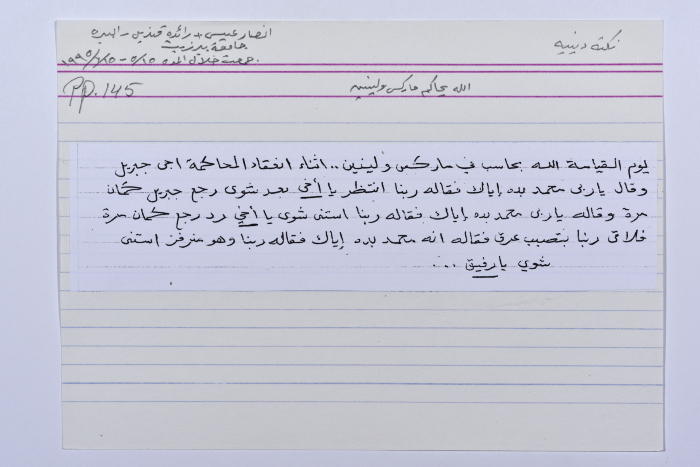 نكتة دينيه
انصار عيسى + رائده قنديس - البيره
جامعة بيرزيت
جمعت خلال المده ٥/١٥ -
الله يحاكم ماركس ولينين
pp. 145
يوم القيامة الله بحاسب في ماركس ولينين .. اثناء انعقاد المحاكمة اجى جبريل
وقال يا ربي محمد بده إياك فقاله ربنا انتظر يا أخي بعد شوي رجع جبريل كمان
مرة وقاله يا ربي محمد بده إياك فقاله ربنا استنى شوي يا أخي رد رجع كمان مرة
فلاقى ربنا بتصبب عرق فقاله انه محمد بده إياك فقاله ربنا وهو منرفز استنى
شوي يا رفيق ...